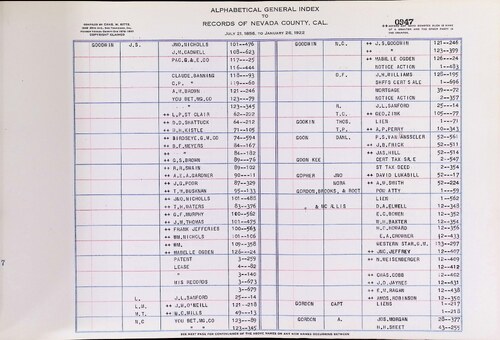 ALPHABETICAL GENERAL INDEX
TO
RECORDS OF NEVADA COUNTY, CAL.
JULY 21, 1856, TO JANUARY 26, 1922
0347
GOODWIN J.S. JNO.NICHOLS 101—476
J.H.CADWELL 108—623
PAC.G.&E.CO 117—25
116—444
CLAUDE.BANNING 118—93
C.P. " 119—60
A.H.BROWN 121—246
YOU BET.MG.CO 123—79
" 123—345
++ L.P.ST CLAIR 62—202
++ D.D.SHATTUCK 64—212
++ H.H.KISTLE 71—105
++ BIRDSEYE.G.M.CO 74—594
++ S.F.MEYERS 84—167
++ " 84—182
++ G.S.BROWN 89—76
++ R.R.SWAIN 89—102
++ A.E.A.GARDNER 90—11
++ J.G.POOR 87—329
++ T.H.BUSANAN 95—133
++ JNO.NICHOLS 101—488
++ T.H.WATERS 83—376
++ G.F.MURPHY 100—562
++ J.M.THOMAS 101—475
++ FRANK JEFFERIES 100—563
++ WM.NICHOLS 101—106
++ WM. 109—358
++ MABELLE OGDEN 126—24
PATENT 3—259
LEASE 4—82
" 3—140
HIS RECORDS 3—673
3—679
L. J.L.SANFORD 25—14
C.H. ++ J.H.O'NEILL 121—218
M.T. ++ M.C.MILLS 49—13
N.C YOU BET.MG.CO 123—89
" " 123—345
GOODWIN N.C. ++ J.S.GOODWIN 121—246
++ " 123—399
++ MABELLE OGDEN 126—24
NOTICE ACTION 1—483
O.F. J.H.WILLIAMS 128—195
SHPTS CERT SALE 1—696
MORTGAGE 39—72
NOTICE ACTION 2—357
R. J.L.SANFORD 25—14
T.C. ++ GEO.ZINK 105—77
GOODWIN THOS. LIEN 1—71
T.P. ++ A.P.PERRY 10—343
GOON DAHL. P.S.VAN 52—561
++ J.B.FRICK 52—511
++ JAS.HILL 52—514
GOON KEE CERT TAX SALE 2—547
ST TAX DEED 2—354
GOPHER JNO ++ DAVID LUKABILL 52—17
NORA ++ A.W.SMITH 52—224
GORDON,BROOKS, & ROOT POU ATTY 1—59
LIEN 1—562
" & MC ALLIS D.A.ELWELL 12—348
E.G.BOWER 12—352
W.H.BAXTER 12—354
W.F.HOWARD 12—356
E.A.CROWNER 12—433
WESTERN STAR,G.M. 13—257
++ JNO.JEFFREY 12—407
++ N.WEISENBERGER 12—409
12—412
++ CHAS.COBB 12—402
++ J.D.JAYNES 12—431
++ E.W.HAGAN 12—438
++ AMOS.ROBINSON 12—350
GORDON CAPT LIENS 1—217
1—218
GORDON A. JOS.MORGAN 28—377
H.H.DREET 43—255